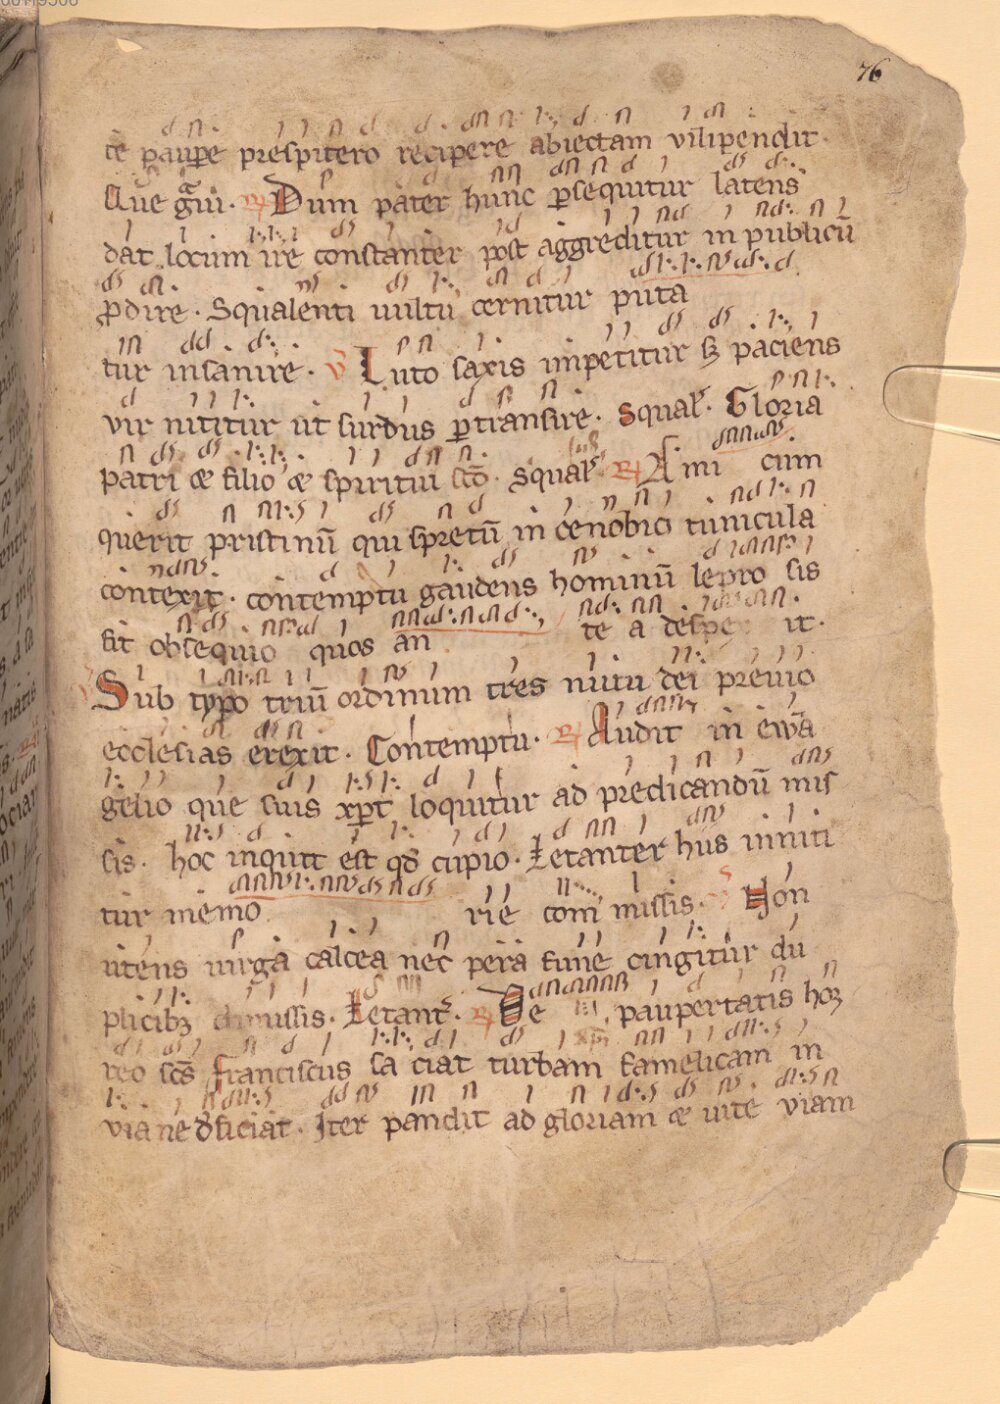 76
te paupe prespitero recipere abiectam vilipendit.
Que gr̄aui. R Dum pater hunc p̱sequitur latens
dat locum ire constanter post aggreditur in publicū
p̱dire. Squalenti uultu cernitur puta
tur insanire. V Luto saxis impetitur sꝫ paciens
vir nititur ut surdus p̱transire. Squal. Gloria
patri et filio et spiritui scō. Squal. R Ami cum
querit pristinū qui spretū in cenobio tunicula
contexit. contemptu gaudens hominū lepro sis
fit obsequio quos an te a despe it.
Sub typo triū ordinum tres nutu dei preuio
ecclesias erexit. Contemptu. R Audit in ewā
gelio que suis xp̄c loquitur ad predicandū mis
sis. hoc inquit est qd̄ cupio. Letanter hiis inniti
tur memo rie com missis. V Non
utens uirga calcea nec pera fune cingitur du
plicibꝫ dimissis. Letant. R De paupertatis horꝫ
reo sc̄s franciscus sa ciat turbam famelicam in
via ne d̄ficiat. Iter pandit ad gloriam et uite viam